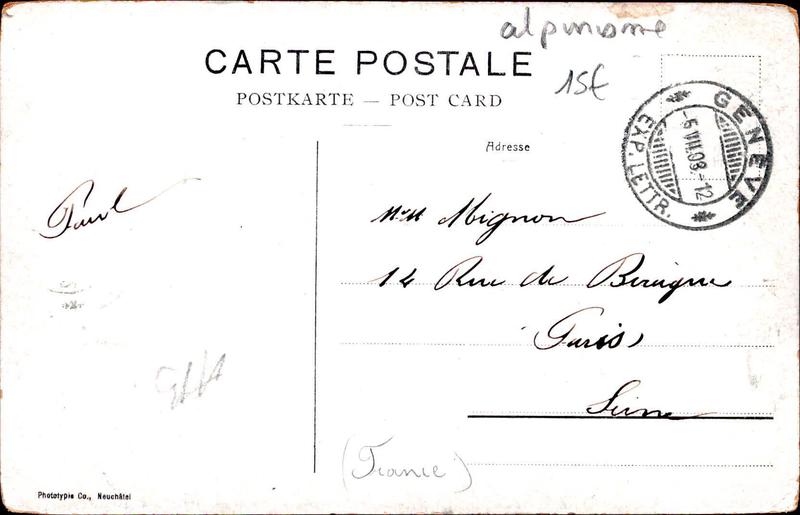 alpinisme
CARTE POSTALE
15€
POSTKARTE — POST CARD
Adresse
GENÈVE
-5 VII.08.-12
EXP. LETTR.
Paul
Mignon
14 Rue de
Paris
Seine
(France)
Phototypie Co., Neuchâtel